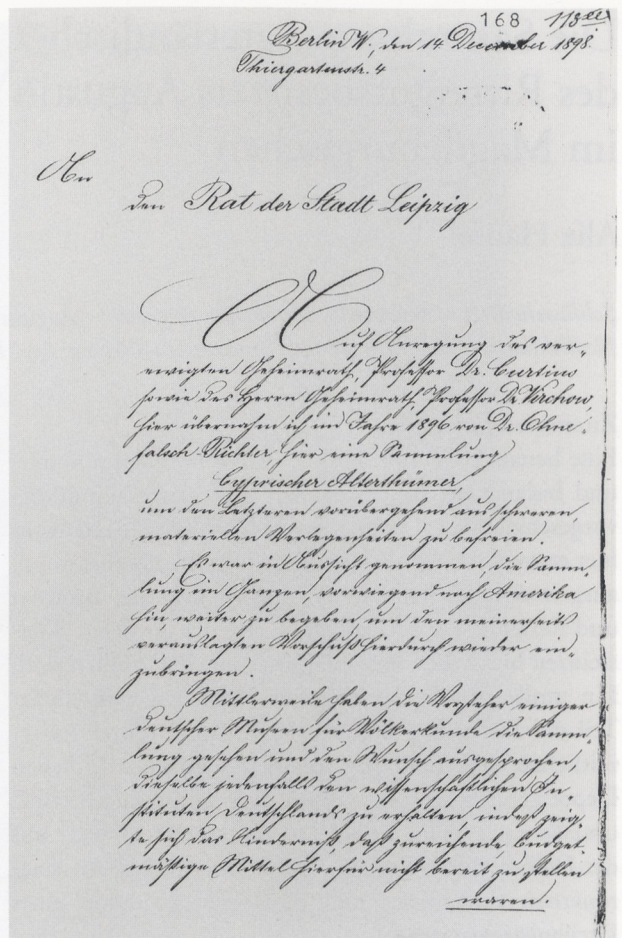 168
Berlin W., den 14 December 1898.
Thiergartenstr. 4
An
den Rat der Stadt Leipzig
Auf Anregung des ver-
ewigten Geheimrath, Professor Dr. Curtius
sowie des Herrn Geheimrath, Professor Dr Virchow,
hier übernahm ich im Jahre 1896 von Dr. Ohne-
falsch-Richter, hier eine Sammlung
Cyprischer Alterthümer,
um den Letzteren vorübergehend aus schweren,
materiellen Verlegenheiten zu befreien.
Es war in Aussicht genommen, die Samm-
lung im Ganzen, vorwiegend nach Amerika
hin, weiter zu begeben, um den meinerseits
verauslagten Vorschuß hierdurch wieder ein-
zubringen.
Mittlerweile haben die Vorsteher einiger
deutscher Museen für Völkerkunde die Samm-
lung gesehen und den Wunsch ausgesprochen,
dieselbe jedenfalls den wissenschaftlichen In-
stituten Deutschlands zu erhalten, indeß zeig-
te sich das Hinderniß, daß zureichende, budget
mäßige Mittel hierfür nicht bereit zu stellen
waren.